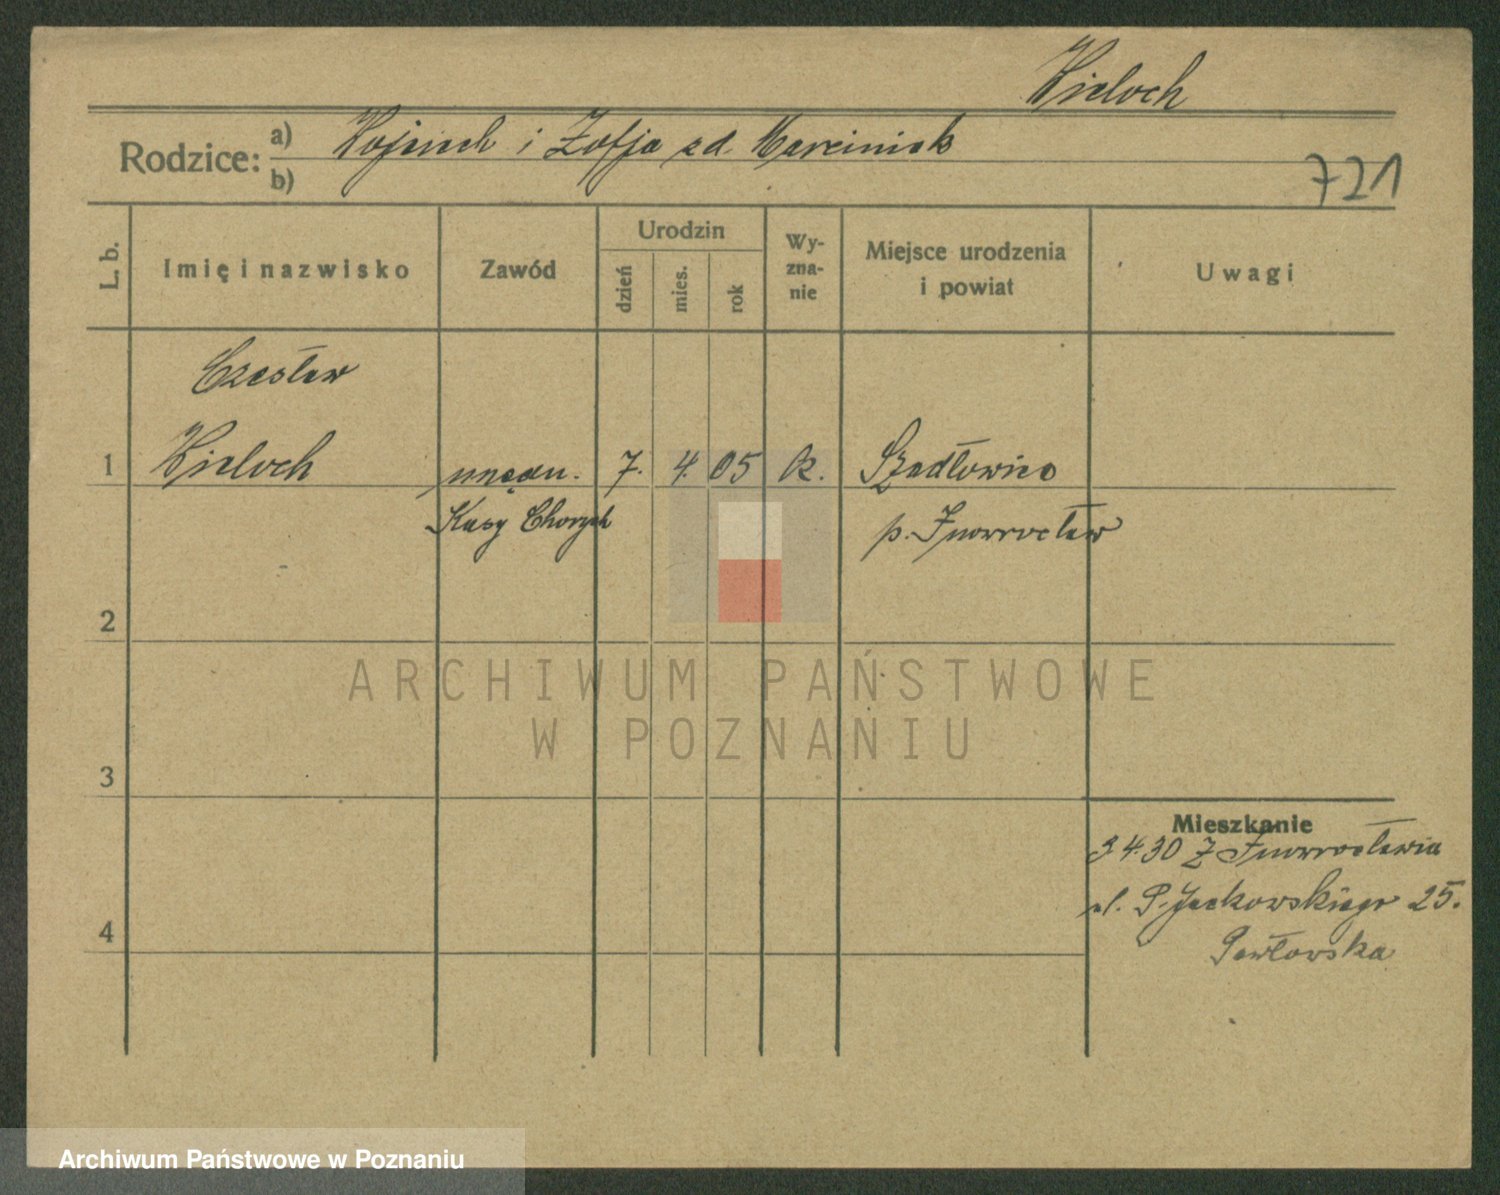 Wieloch
Rodzice: a) Wojciech i Zofja zd. Marciniak
b)
721
L. b.
Imię i nazwisko
Zawód
Urodzin
dzień
mies.
rok
Wy-
zna-
nie
Miejsce urodzenia
i powiat
Uwagi
Czesław
1 Wieloch urzędn. 7. 4. 05 k. Szadłowice
Kasy Chorych p. Inowrocław
2
3
4
Mieszkanie
3.4.30 z Inowrocławia
ul. P. Jackowskiego 25.
Pawłowska
ARCHIWUM PAŃSTWOWE
W POZNANIU
Archiwum Państwowe w Poznaniu